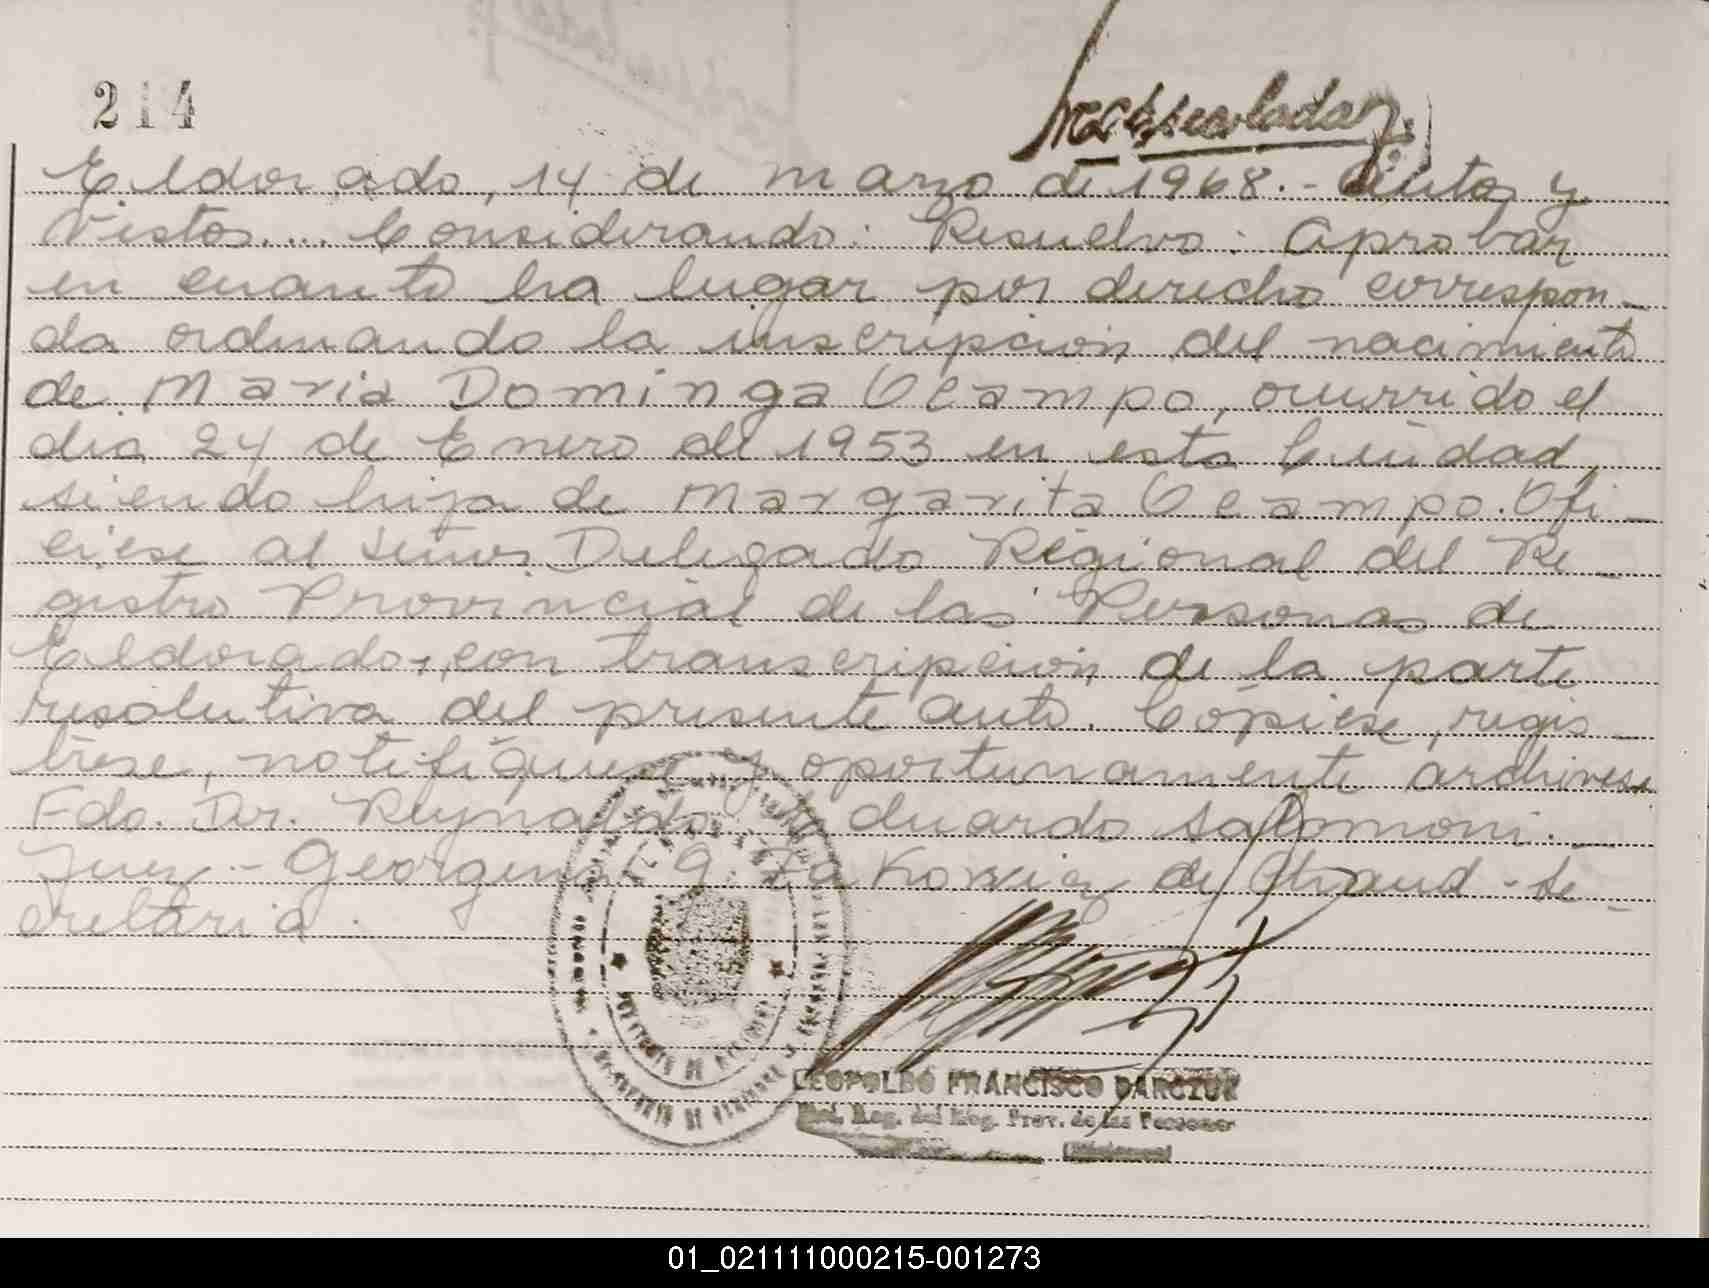 214
Eldorado, 14 de marzo de 1968.- Autos y
Vistos.... Considerando: Resuelvo: Aprobar
en cuanto ha lugar por derecho correspon-
da ordenando la inscripción del nacimiento
de Maria Dominga Ocampo, ocurrido el
dia 24 de Enero de 1953 en esta Ciudad,
siendo hija de Margarita Ocampo. Ofi-
ciese al señor Delegado Regional del Re-
gistro Provincial de las Personas de
Eldorado, con transcripción de la parte
resolutiva del presente auto. Cópiese, regis-
trese, notifiquese y oportunamente archivese
Fdo. Dr. Reynaldo Eduardo Salomoni.-
Juez - Georgina de - Se-
cretaria.
LEOPOLDO FRANCISCO
Del. Reg. del Reg. Prov. de las Personas
(Misiones)
01_021111000215-001273